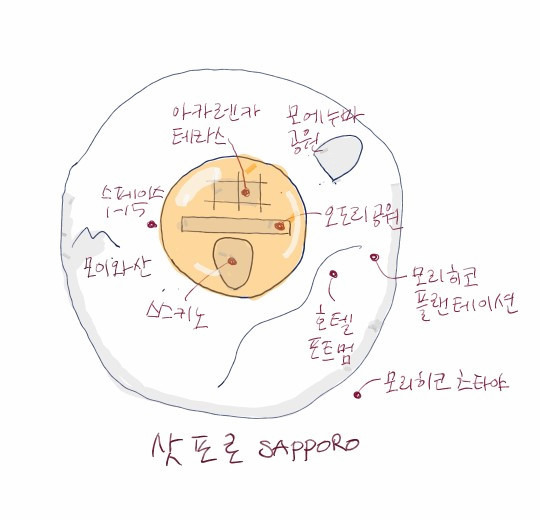 아카렌카
테라스
모에누마
공원
스페이스
1-15
오도리공원
모이와산
스스키노
호텔
포트멈
모리히코
플랜테이션
모리히코 츠타야
삿포로 SAPPORO